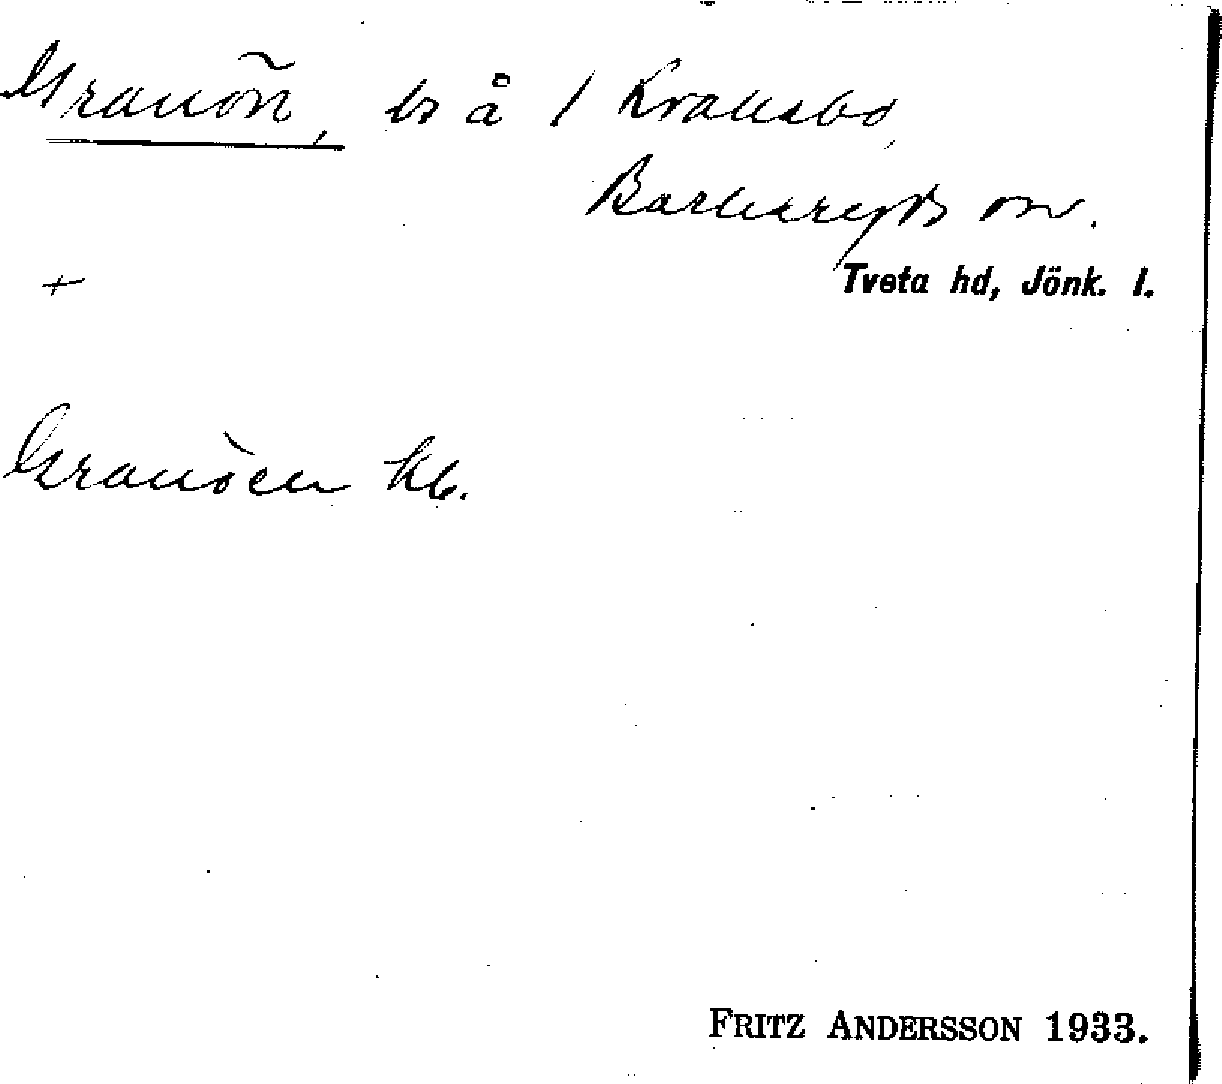 Granön, ts å 1 Kråkebo,
Barkeryds sn.
Tveta hd, Jönk. l.
+
Granöen kb.
FRITZ ANDERSSON 1933.